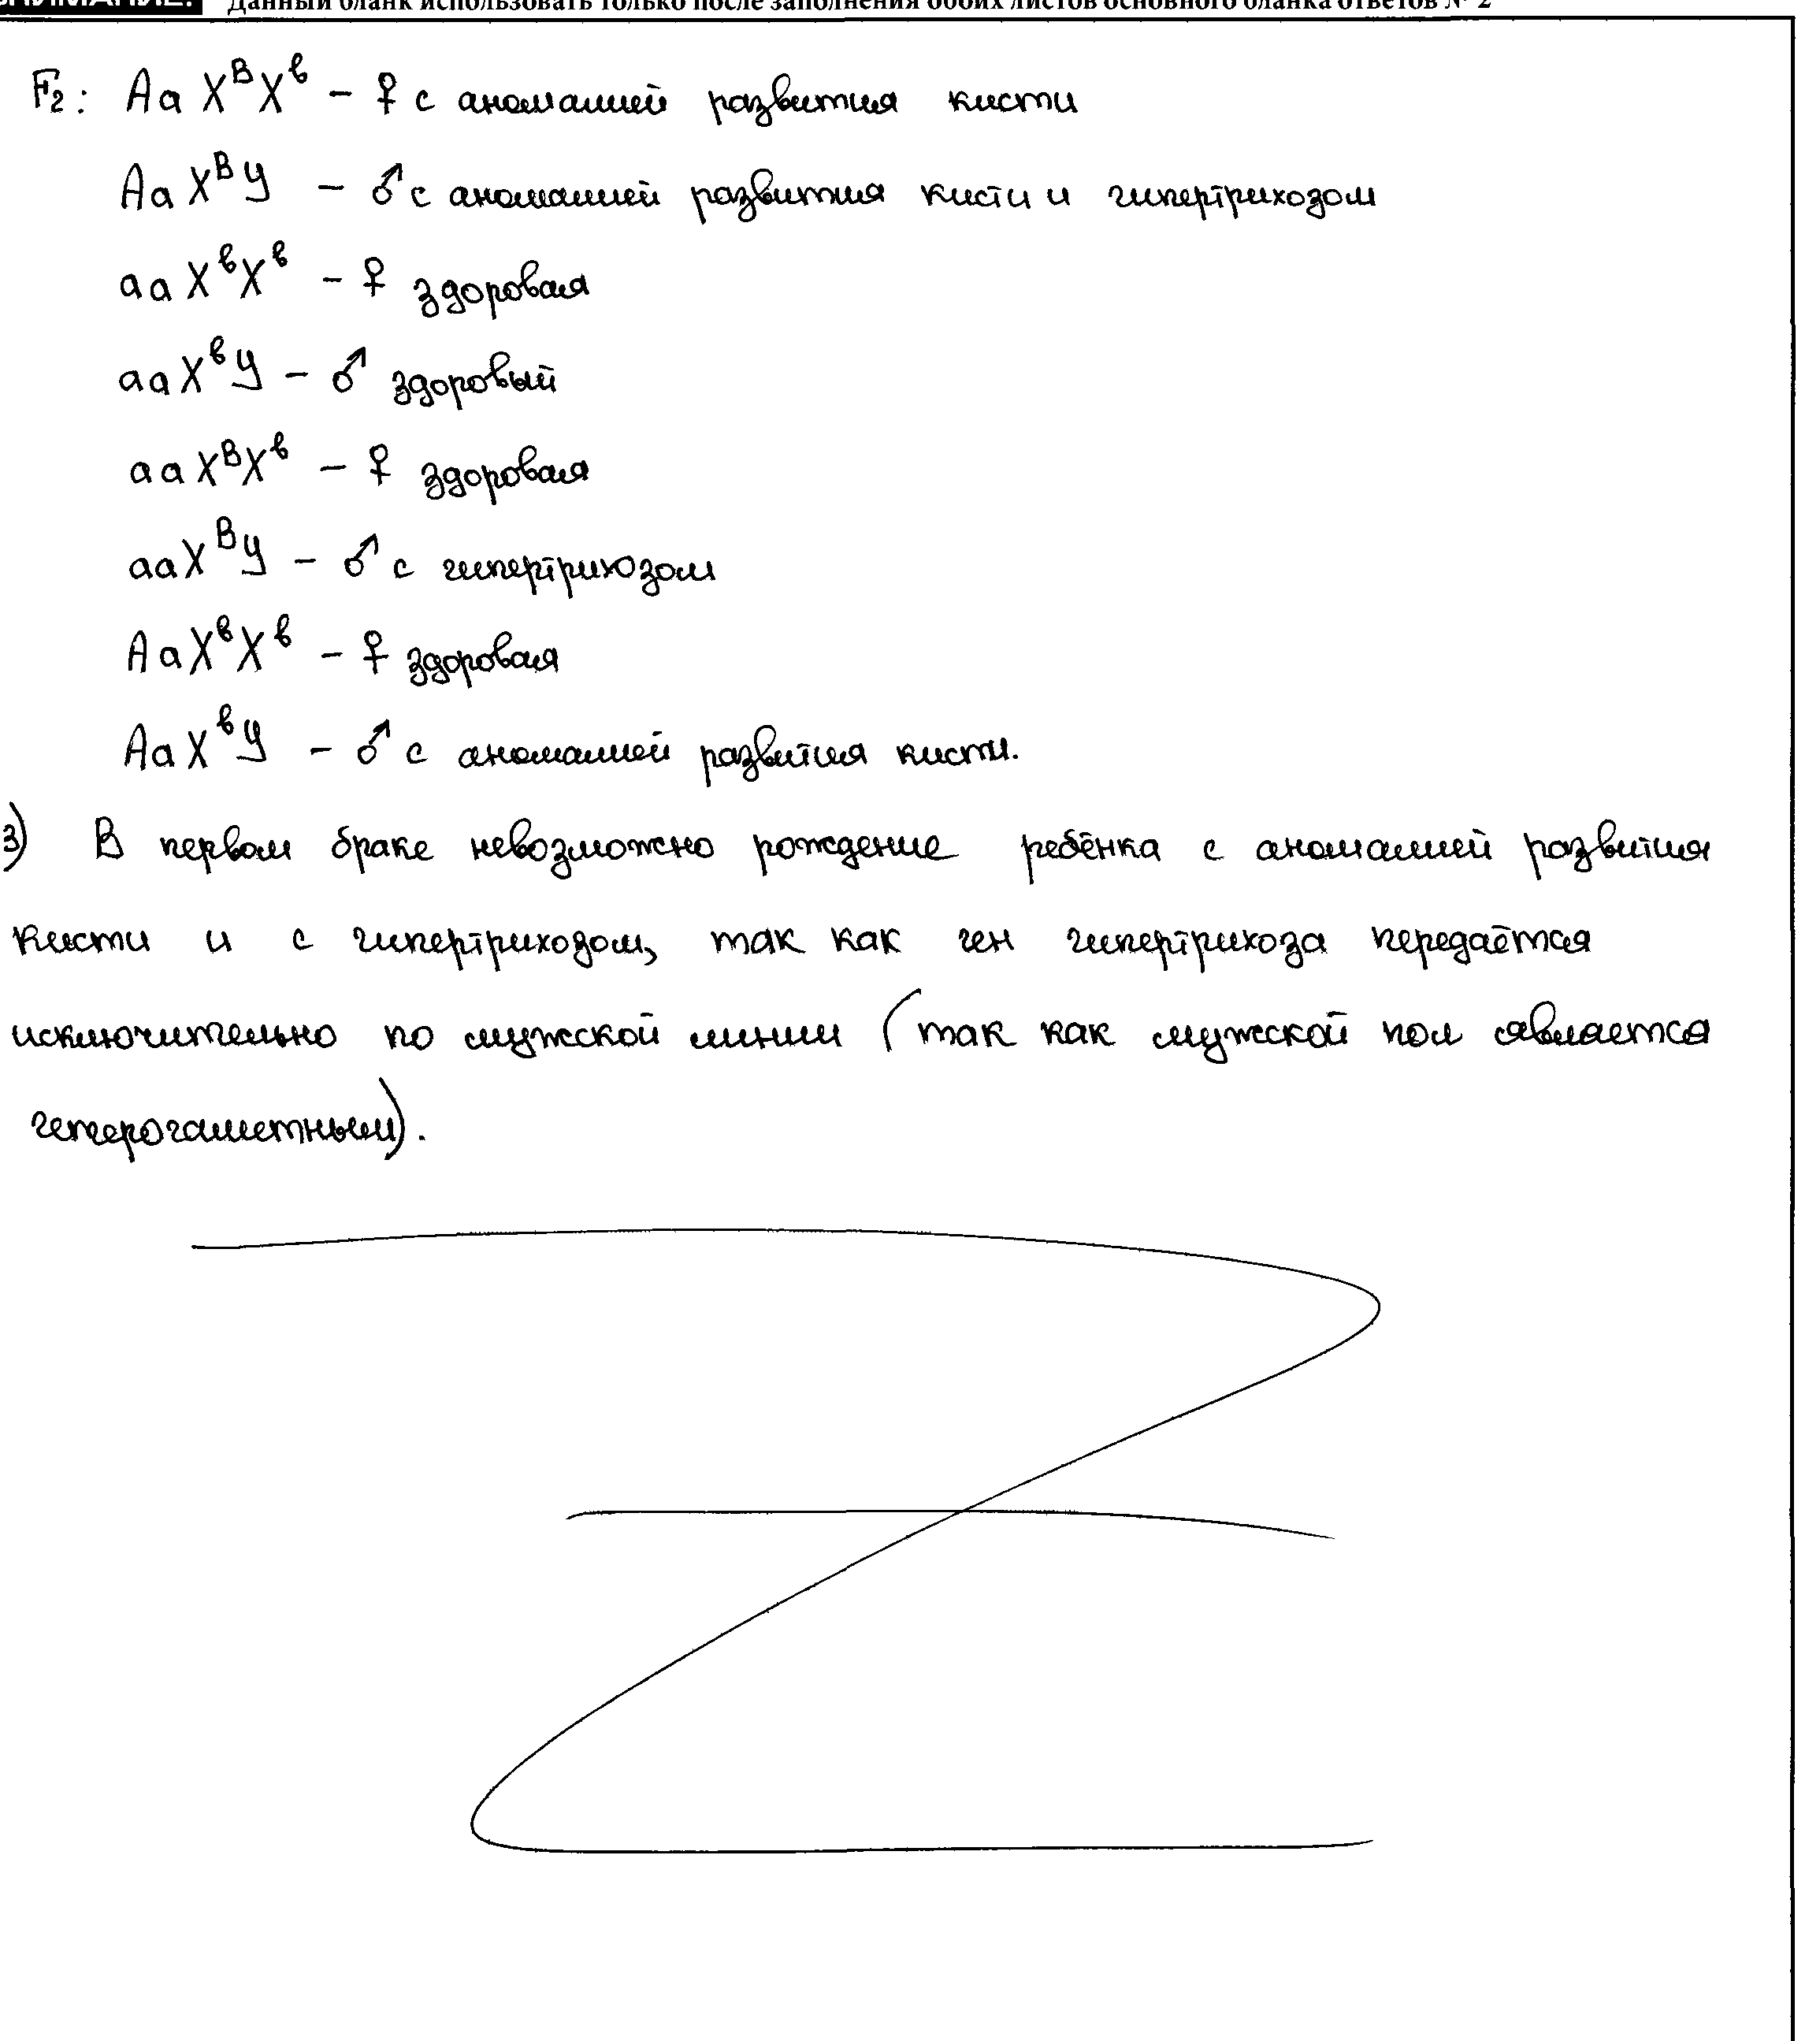 ВНИМАНИЕ! Данный бланк использовать только после заполнения обоих листов основного бланка ответов № 2
F₂: Aa XᴮXᵇ – ♀ с аномалией развития кисти
Aa XᴮY – ♂ с аномалией развития кисти и гипертрихозом
aa XᵇXᵇ – ♀ здоровая
aa XᵇY – ♂ здоровый
aa XᴮXᵇ – ♀ здоровая
aa XᴮY – ♂ с гипертрихозом
Aa XᵇXᵇ – ♀ здоровая
Aa XᵇY – ♂ с аномалией развития кисти.
3) В первом браке невозможно рождение ребёнка с аномалией развития
кисти и с гипертрихозом, так как ген гипертрихоза передаётся
исключительно по мужской линии (так как мужской пол является
гетерогаметным).